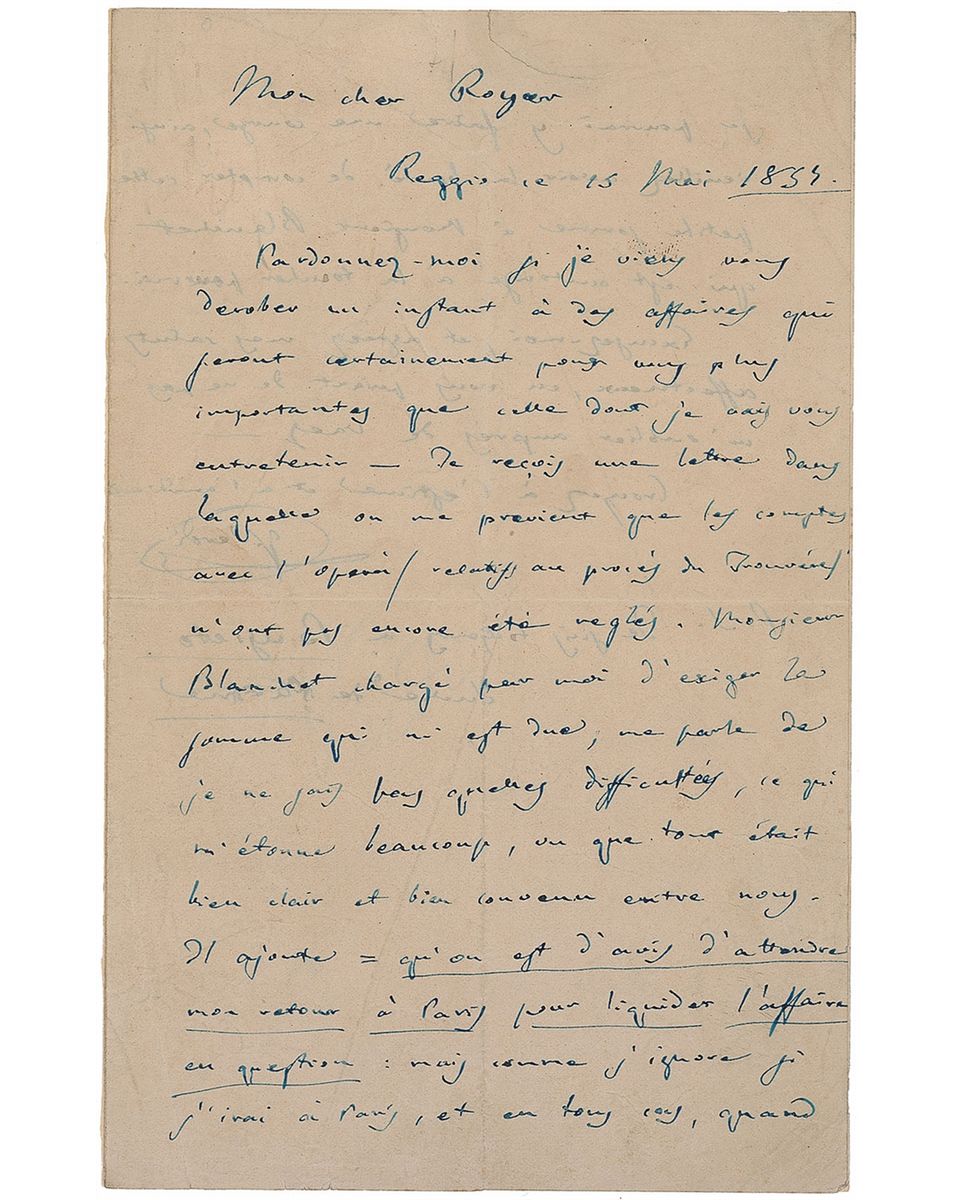 Mon cher Royer
Reggio le 15 Mai 1857.
Pardonnez-moi si je viens vous
derober un instant à des affaires qui
seront certainement pour vous plus
importantes que celle dont je vais vous
entretenir — Je reçois une lettre dans
laquelle on me previent que les comptes
avec l'opéra / relatifs au procés du Trouvére /
n'ont pas encore été reglés. Monsieur
Blanchet chargé par moi d'exiger la
somme qui m'est due, me parle de
je ne sais pas quelles difficultées, ce qui
m'étonne beaucoup, vu que tout était
bien clair et bien convenu entre nous.
Il ajoute = qu'on est d'avis d'attendre
mon retour à Paris pour liquider l'affaire
en question : mais comme j'ignore si
j'irai à Paris, et en tous cas, quand